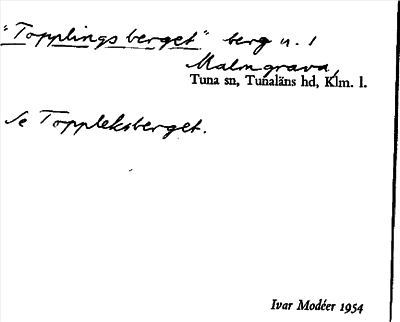 "Topplingsberget" berg n. l
Malmgrava,
Tuna sn, Tunaläns hd, Klm. l.
Se Toppleksberget.
Ivar Modéer 1954